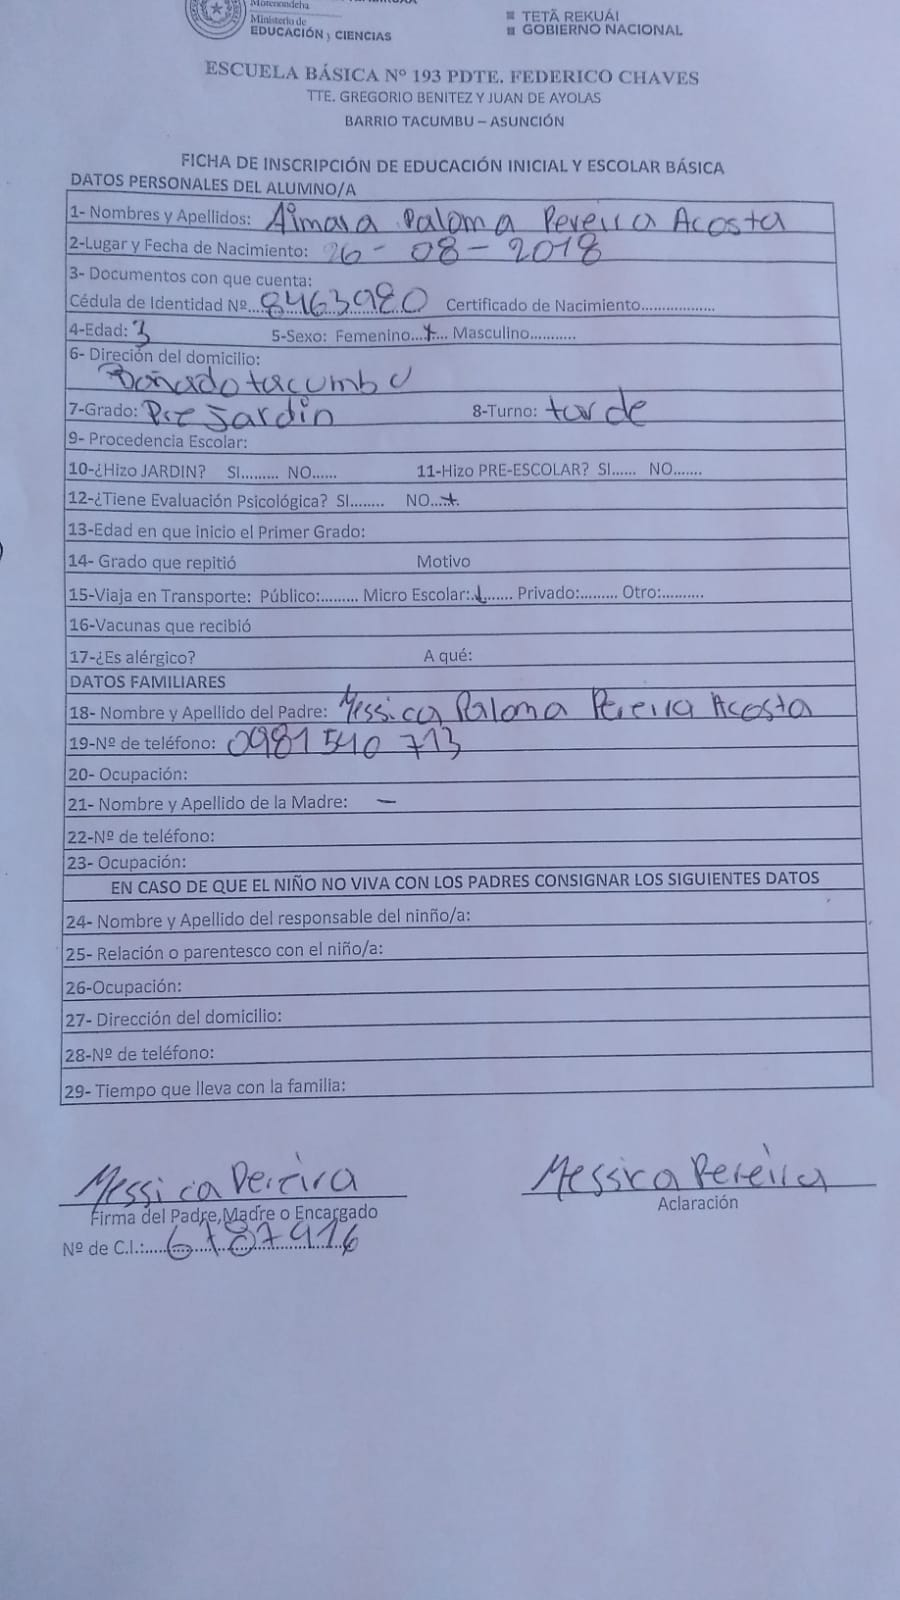 Ministerio de
EDUCACIÓN y CIENCIAS
TETÃ REKUÁI
GOBIERNO NACIONAL
ESCUELA BÁSICA Nº 193 PDTE. FEDERICO CHAVES
TTE. GREGORIO BENITEZ Y JUAN DE AYOLAS
BARRIO TACUMBU – ASUNCIÓN
FICHA DE INSCRIPCIÓN DE EDUCACIÓN INICIAL Y ESCOLAR BÁSICA
DATOS PERSONALES DEL ALUMNO/A
1- Nombres y Apellidos: Aimara Paloma Pereira Acosta
2-Lugar y Fecha de Nacimiento: 26-08-2018
3- Documentos con que cuenta:
Cédula de Identidad Nº...8463980 Certificado de Nacimiento..................
4-Edad: 3 5-Sexo: Femenino....x.... Masculino...........
6- Direción del domicilio:
Bañado tacumbu
7-Grado: Pre Jardin 8-Turno: tarde
9- Procedencia Escolar:
10-¿Hizo JARDIN? SI......... NO...... 11-Hizo PRE-ESCOLAR? SI...... NO.......
12-¿Tiene Evaluación Psicológica? SI........ NO....x.
13-Edad en que inicio el Primer Grado:
14- Grado que repitió Motivo
15-Viaja en Transporte: Público:......... Micro Escolar:.x....... Privado:......... Otro:..........
16-Vacunas que recibió
17-¿Es alérgico? A qué:
DATOS FAMILIARES
18- Nombre y Apellido del Padre: Messica Paloma Pereira Acosta
19-Nº de teléfono: 0981 540 713
20- Ocupación:
21- Nombre y Apellido de la Madre: —
22-Nº de teléfono:
23- Ocupación:
EN CASO DE QUE EL NIÑO NO VIVA CON LOS PADRES CONSIGNAR LOS SIGUIENTES DATOS
24- Nombre y Apellido del responsable del ninño/a:
25- Relación o parentesco con el niño/a:
26-Ocupación:
27- Dirección del domicilio:
28-Nº de teléfono:
29- Tiempo que lleva con la familia:
Messica Pereira
Messica Pereira
Firma del Padre,Madre o Encargado
Aclaración
Nº de C.I.:.....6787916